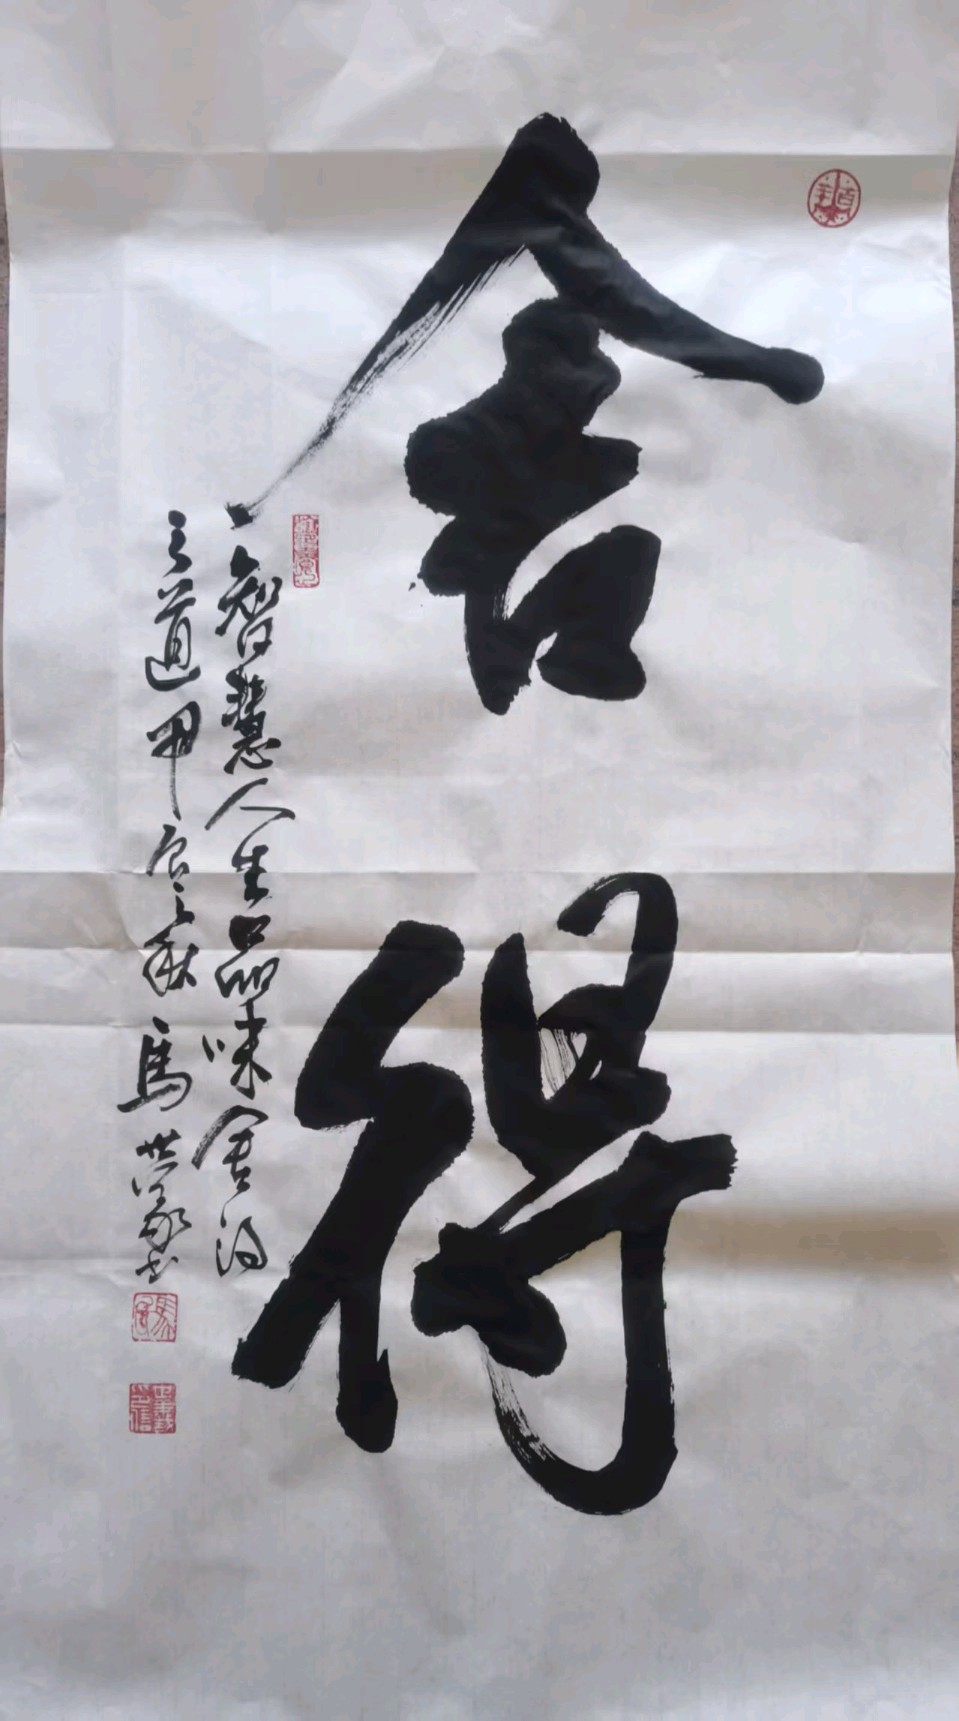 舍得
智慧人生品味舍得
之道甲辰之秋馬世豪书